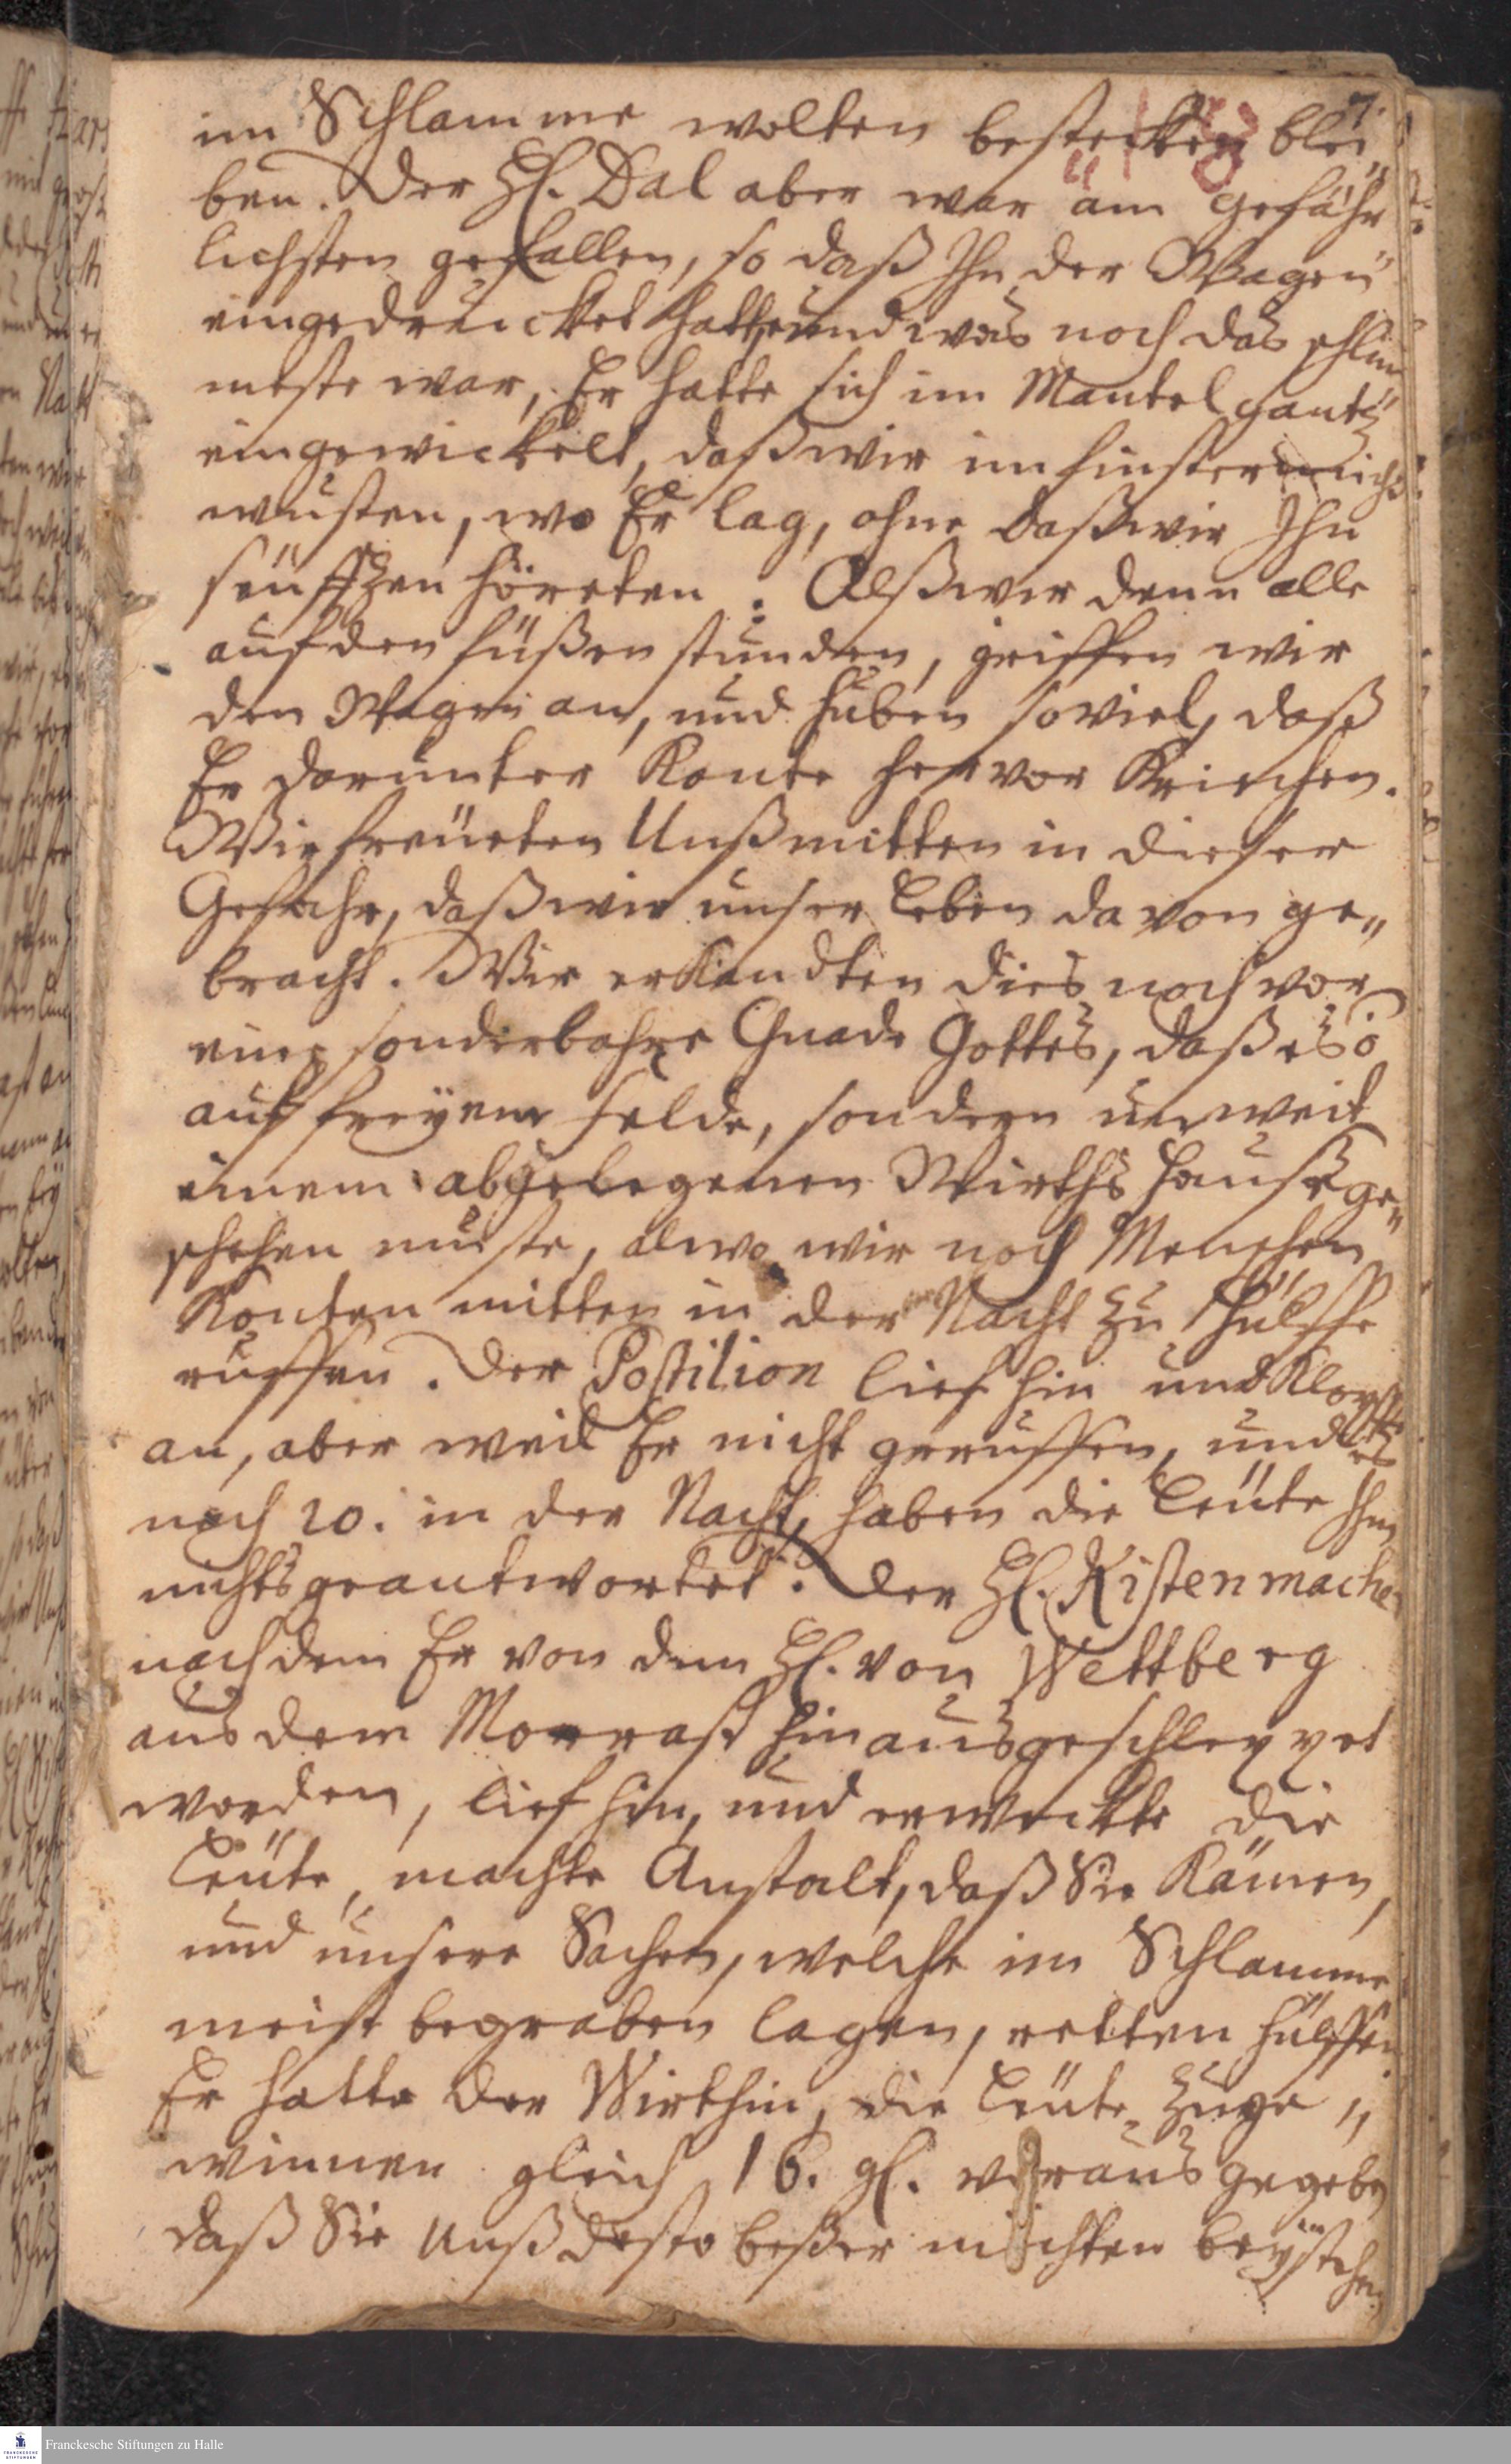 7.
im Schlamme wolten bestecken blei„
ben. Der H. Dal aber war am gefähr„
lichsten gefallen, so daß Ihn der Wagen
eingedruicket hatte und was noch das schlim„
meste war, Er hatte sich im Mantel gantz
eingewickelt, daß wir im finstern nicht
wusten, wo Er lag, ohne daß wir Ihn
seüfftzen höreten. Alß wir denn alle
auf den füßen stunden, griffen wir
den Wagen an, und huben soviel, daß
Er darunter Konte hervor Kriechen.
Wir freüeten Unß mitten in dieser
Gefahr, daß wir unser Leben davon ge„
bracht. Wir erKandten dies noch vor
eine sonderbahre Gnade Gottes, daß es ö
auf freÿem felde, sondern unweit
einem abgelegenen Wirths Hause ge„
schehen muste, alwo wir noch Menschen
Konten mitten in der Nacht zu Hülffe
ruffen. Der Postilion lief hin und Klopffte
an, aber weil Er nicht geruffen, und es
nach 10. in der Nacht, haben die Leüte Ihm
nichts geantwortet. Der H. Kistenmacher
nachdem Er von dem H. von Wettberg
aus dem Morrast hinausgeschleppet
worden, lief hin, und erweckte die
Leüte, machte Anstalt, daß Sie Kämen,
und unsere Sachen, welche im Schlamme
meist begraben lagen, retten hülffen.
Er hatte der Wirthin, die Leüte zu ge„
winnen gleich 16. gl. voraus gegeben
daß Sie Unß desto beßer möchten beÿstehen
Franckesche Stiftungen zu Halle